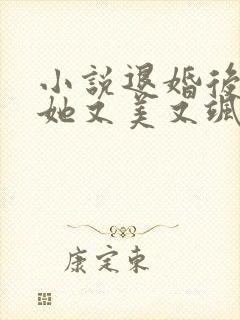 小說退婚後
她又美又颯
康定東